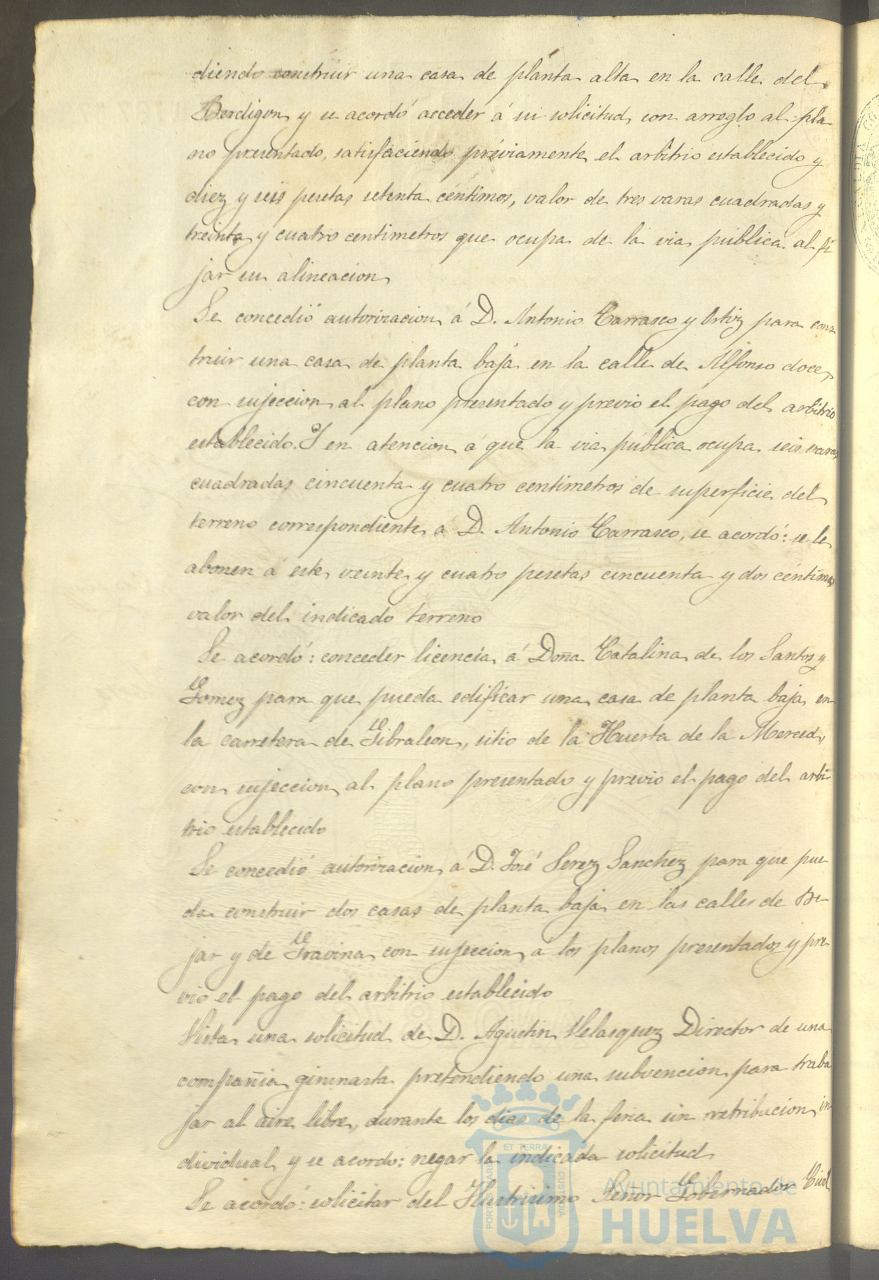 diendo construir una casa de planta alta en la calle del
Bordigon y se acordó acceder á su solicitud, con arreglo al pla-
no presentado, satisfaciendo préviamente el arbitrio establecido y
diez y seis pesetas setenta céntimos, valor de tres varas cuadradas y
treinta y cuatro centimetros que ocupa de la via pública al fi
jar su alineacion
Se concedió autorizacion á D. Antonio Carrasco y Ortiz para cons
truir una casa de planta baja en la calle de Alfonso doce,
con sujeccion al plano presentado y previo el pago del arbitrio
establecido. Y en atencion á que la via pública ocupa seis varas
cuadradas cincuenta y cuatro centimetros de superficie del
terreno correspondiente á D. Antonio Carrasco, se acordó: se le
abonen á este veinte y cuatro pesetas cincuenta y dos céntimos
valor del indicado terreno
Se acordó: conceder licencia á Doña Catalina de los Santos y
Gomez para que pueda edificar una casa de planta baja en
la carretera de Gibraleon, sitio de la Huerta de la Merced,
con sujeccion al plano presentado y previo el pago del arbi-
trio establecido
Se concedió autorizacion á D. José Perez Sanchez para que pue-
da construir dos casas de planta baja en las calles de Be-
jar y de Gravina con sujeccion a los planos presentados y pre-
vio el pago del arbitrio establecido
Vista una solicitud de D. Agustin Velasquez Director de una
compañia gimnasta pretendiendo una subvencion para traba
jar al aire libre, durante los dias de la feria sin retribucion in
dividual y se acordo: negar la indicada solicitud
Se acordó: solicitar del Ilustrisimo Señor Gobernador Civil
ET TERRA
PORTUS MARIS
CUSTODIA
Ayuntamiento de
HUELVA